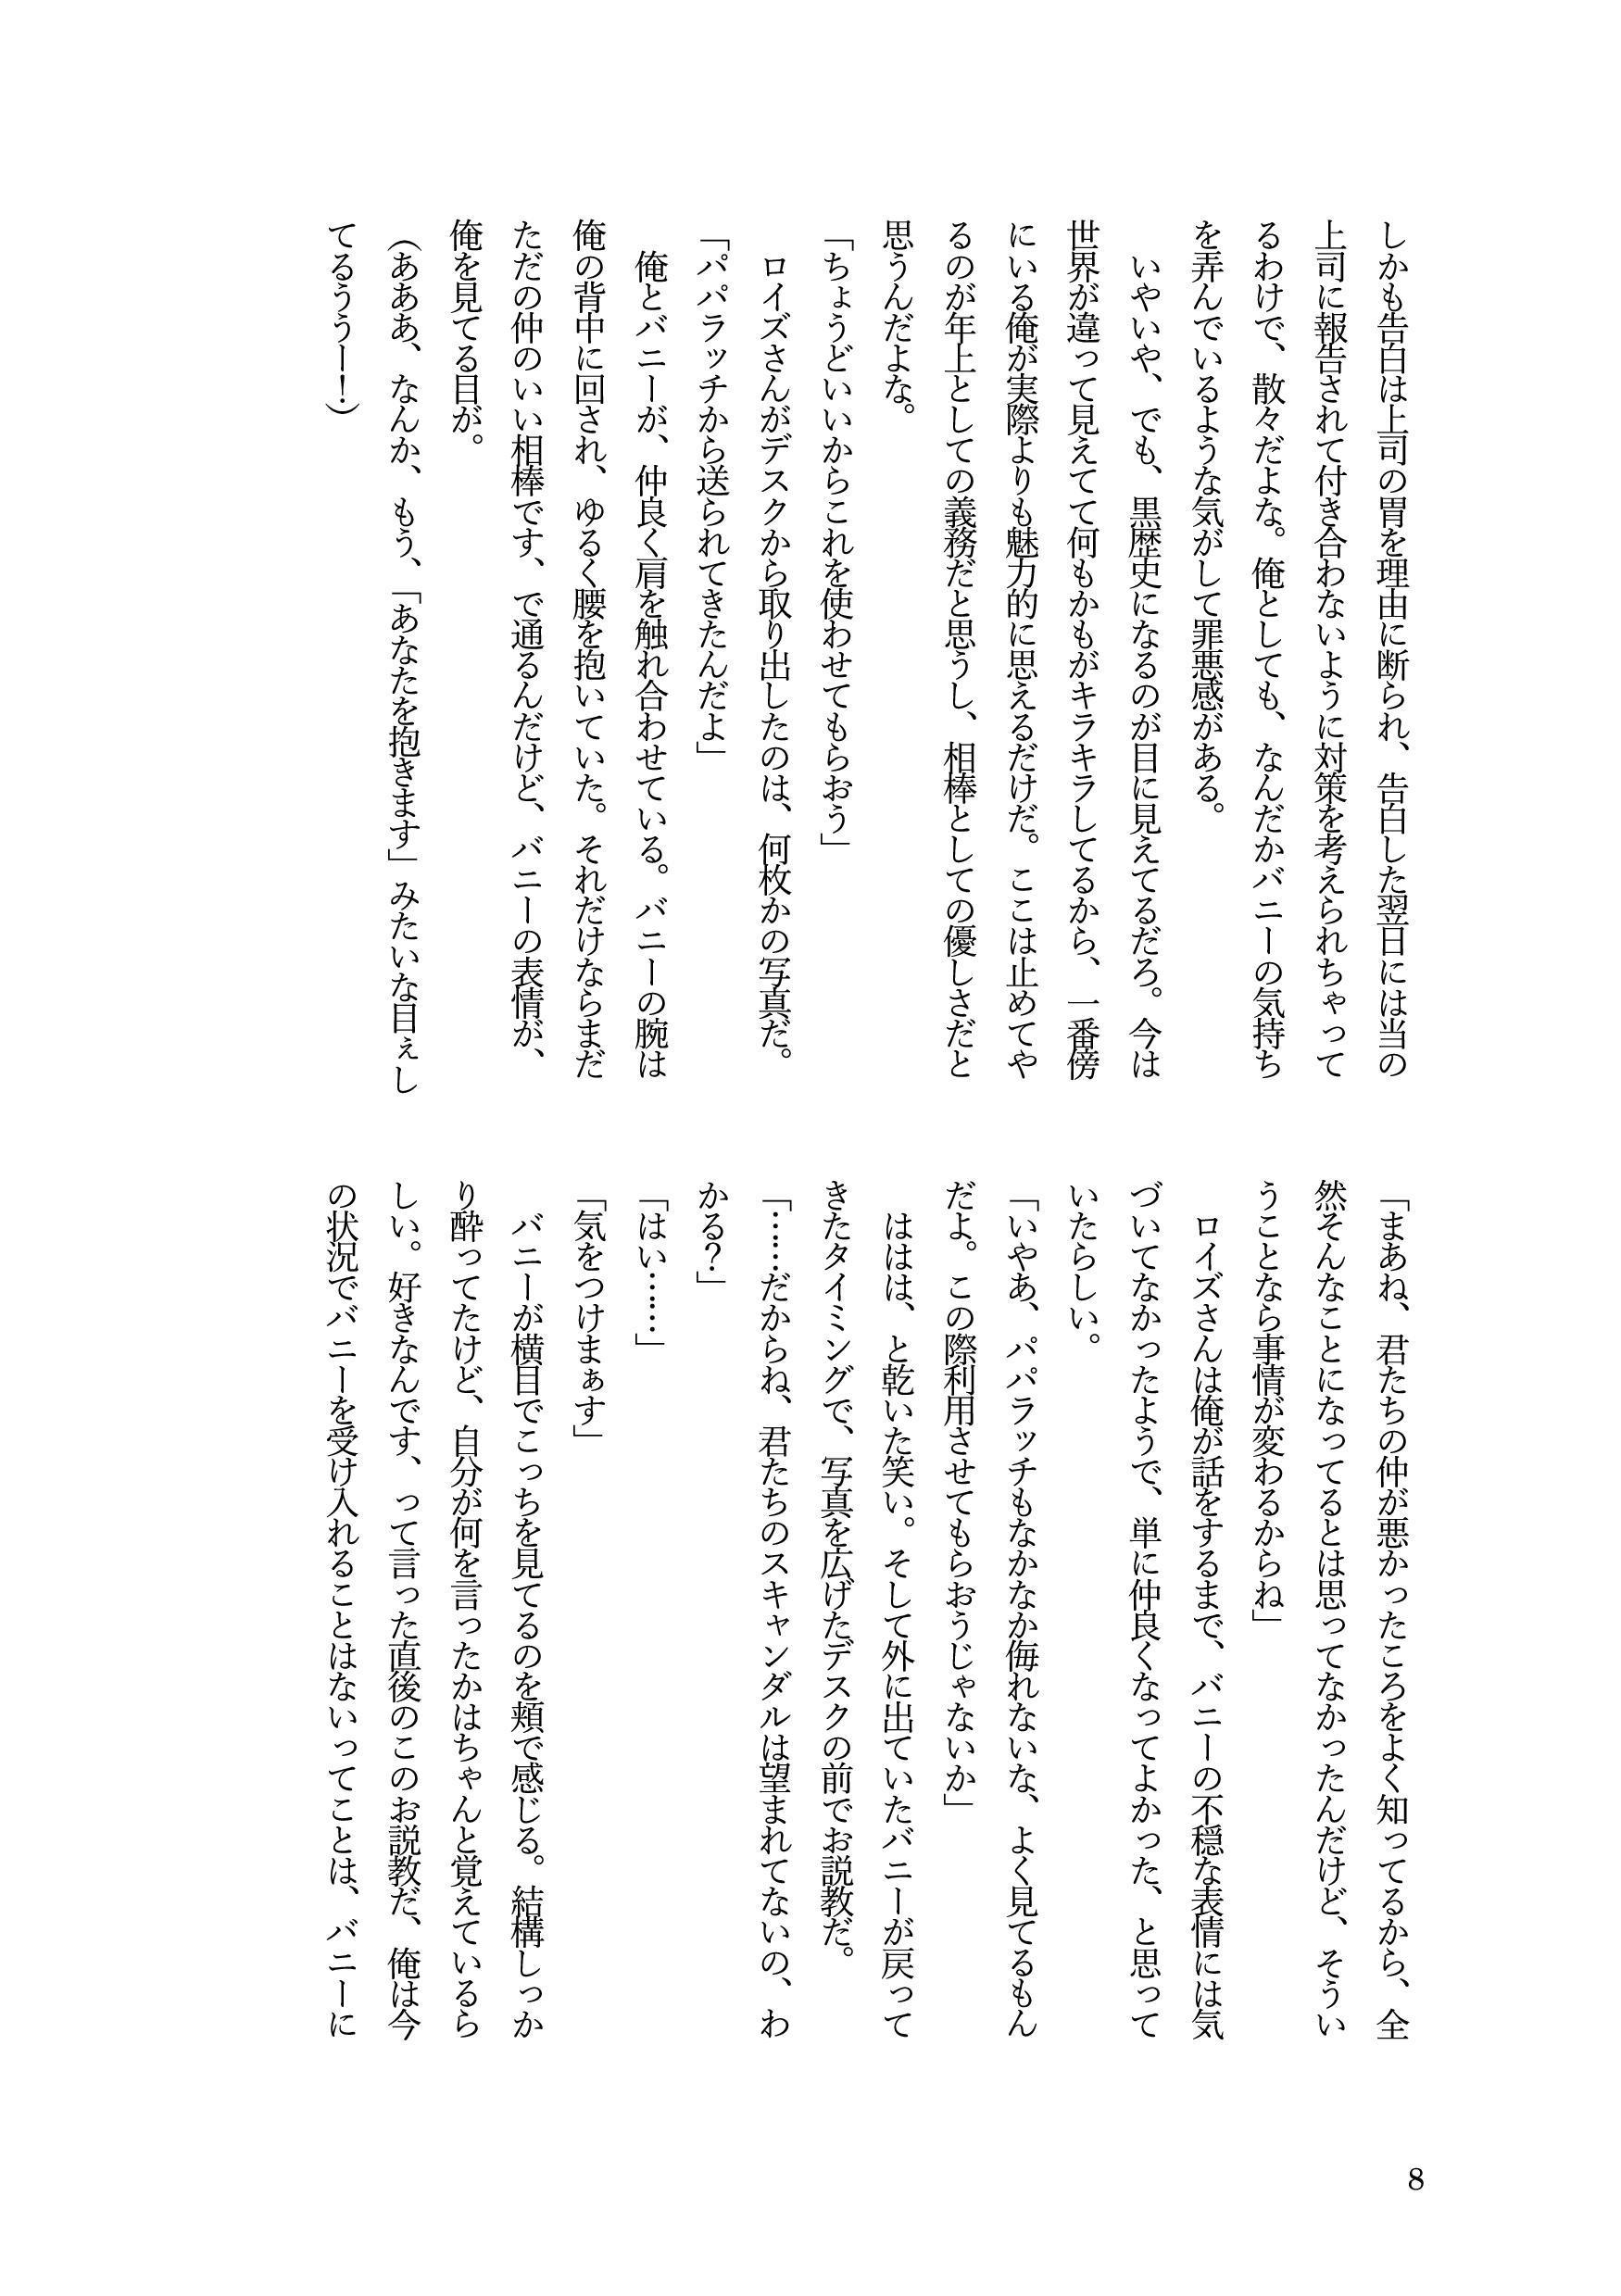 しかも告白は上司の胃を理由に断られ、告白した翌日には当の
上司に報告されて付き合わないように対策を考えられちゃって
るわけで、散々だよな。俺としても、なんだかバニーの気持ち
を弄んでいるような気がして罪悪感がある。
　いやいや、でも、黒歴史になるのが目に見えてるだろ。今は
世界が違って見えてて何もかもがキラキラしてるから、一番傍
にいる俺が実際よりも魅力的に思えるだけだ。ここは止めてや
るのが年上としての義務だと思うし、相棒としての優しさだと
思うんだよな。
「ちょうどいいからこれを使わせてもらおう」
　ロイズさんがデスクから取り出したのは、何枚かの写真だ。
「パパラッチから送られてきたんだよ」
　俺とバニーが、仲良く肩を触れ合わせている。バニーの腕は
俺の背中に回され、ゆるく腰を抱いていた。それだけならまだ
ただの仲のいい相棒です、で通るんだけど、バニーの表情が、
俺を見てる目が。
（あああ、なんか、もう、「あなたを抱きます」みたいな目ぇし
てるうぅー！）
「まあね、君たちの仲が悪かったころをよく知ってるから、全
然そんなことになってるとは思ってなかったんだけど、そうい
うことなら事情が変わるからね」
　ロイズさんは俺が話をするまで、バニーの不穏な表情には気
づいてなかったようで、単に仲良くなってよかった、と思って
いたらしい。
「いやあ、パパラッチもなかなか侮れないな、よく見てるもん
だよ。この際利用させてもらおうじゃないか」
　ははは、と乾いた笑い。そして外に出ていたバニーが戻って
きたタイミングで、写真を広げたデスクの前でお説教だ。
「……だからね、君たちのスキャンダルは望まれてないの、わ
かる？」
「はい……」
「気をつけまぁす」
　バニーが横目でこっちを見てるのを頬で感じる。結構しっか
り酔ってたけど、自分が何を言ったかはちゃんと覚えているら
しい。好きなんです、って言った直後のこのお説教だ、俺は今
の状況でバニーを受け入れることはないってことは、バニーに
8